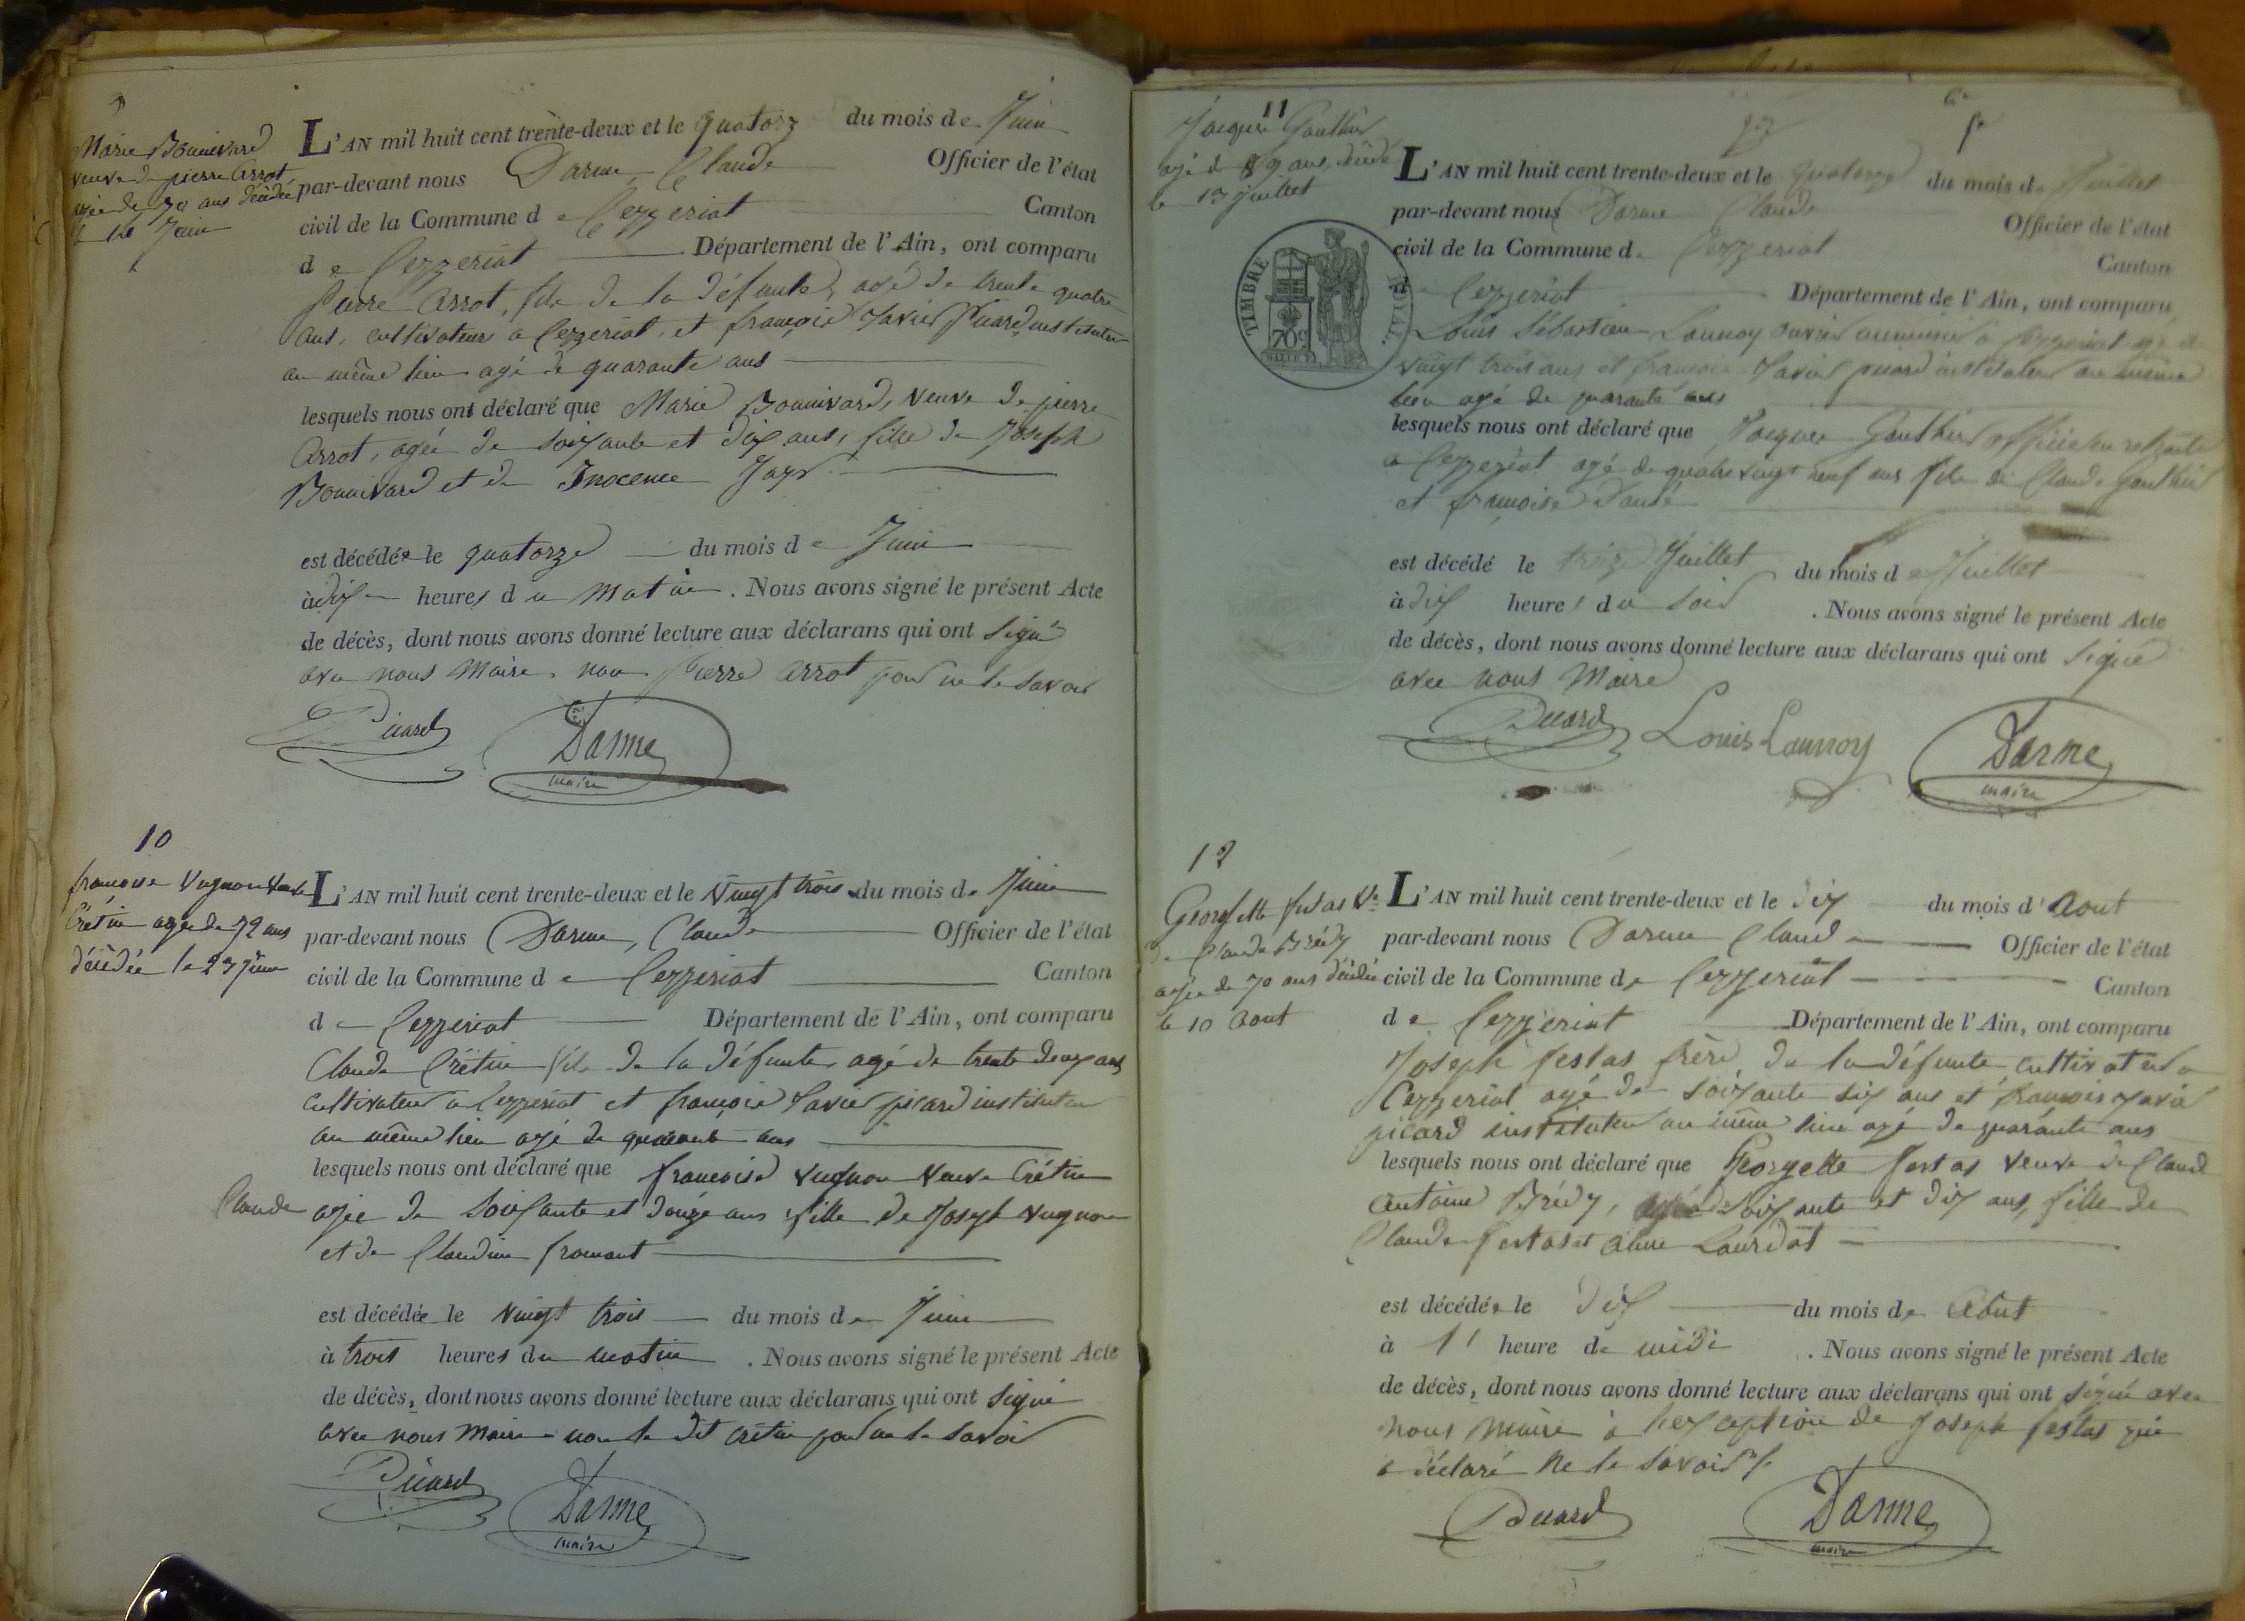 9
Marie Bonnivard
veuve de pierre Arrot
agée de 70 ans décédée
le 14 Juin
L'AN mil huit cent trente-deux et le quatorze du mois de Juin
par-devant nous Darme, Claude Officier de l'état
civil de la Commune de Cezzeriat Canton
de Cezzeriat Département de l'Ain, ont comparu
Pierre Arrot, fils de la défunte, agé de trente quatre
ans, cultivateur a Cezzeriat, et françois Xavier Picard instituteur
au même lieu agé de quarante ans
lesquels nous ont déclaré que Marie Bonnivard, veuve de pierre
Arrot, agée de soixante et dix ans, fille de Joseph
Bonnivard et de Inocence Jayr
est décédée le quatorze du mois de Juin
à dix heures du matin. Nous avons signé le présent Acte
de décès, dont nous avons donné lecture aux déclarans qui ont signé
avec nous Maire, non Pierre Arrot pour ne le savoir
Picard Darme
maire
10
françoise Vugnon veuve
Crétin agée de 72 ans
décédée le 23 Juin
L'AN mil huit cent trente-deux et le vingt trois du mois de Juin
par-devant nous Darme, Claude Officier de l'état
civil de la Commune de Cezzeriat Canton
de Cezzeriat Département de l'Ain, ont comparu
Claude Crétin fils de la défunte agé de trente deux ans
cultivateur a Cezzeriat et françois Xavier picard instituteur
au même lieu agé de quarante ans
lesquels nous ont déclaré que françoise Vugnon veuve Crétin
Claude agée de soixante et douze ans fille de Joseph Vugnon
et de Claudine fromont
est décédée le vingt trois du mois de Juin
à trois heures du matin. Nous avons signé le présent Acte
de décès, dont nous avons donné lecture aux déclarans qui ont signé
avec nous Maire non le dit crétin pour ne le savoir
Picard Darme
maire
11
Jacques Gauthier
agé de 89 ans, décédé
le 13 Juillet
TIMBRE ROYAL
70c
L'AN mil huit cent trente-deux et le quatorze du mois de Juillet
par-devant nous Darme Claude Officier de l'état
civil de la Commune de Cezzeriat Canton
de Cezzeriat Département de l'Ain, ont comparu
Louis Sébastien Launoy ouvrier a Cezzeriat agé de
vingt trois ans et françois Xavier picard instituteur au même
lieu agé de quarante ans
lesquels nous ont déclaré que Jacques Gauthier officier en retraite
a Cezzeriat agé de quatre vingt neuf ans fils de Claude Gauthier
et françoise
est décédé le treize Juillet du mois de Juillet
à dix heures du soir. Nous avons signé le présent Acte
de décès, dont nous avons donné lecture aux déclarans qui ont signé
avec nous Maire
Picard Louis Launoy Darme
maire
12
Georgette festas Ve
de Claude Brédy
agée de 70 ans décédée
le 10 Aout
L'AN mil huit cent trente-deux et le dix du mois d'Aout
par-devant nous Darme Claude Officier de l'état
civil de la Commune de Cezzeriat Canton
de Cezzeriat Département de l'Ain, ont comparu
Joseph festas frère de la défunte, cultivateur a
Cezzeriat agé de soixante six ans et françois Xavier
picard instituteur au même lieu agé de quarante ans
lesquels nous ont déclaré que Georgette festas veuve de Claude
Antoine Brédy, agée soixante et dix ans, fille de
Claude festas et Lourdat
est décédée le dix du mois de Aout
à 1 heure de midi. Nous avons signé le présent Acte
de décès, dont nous avons donné lecture aux déclarans qui ont signé avec
nous Maire à l'exception de Joseph festas qui
a déclaré ne le savoir
Picard Darme
maire